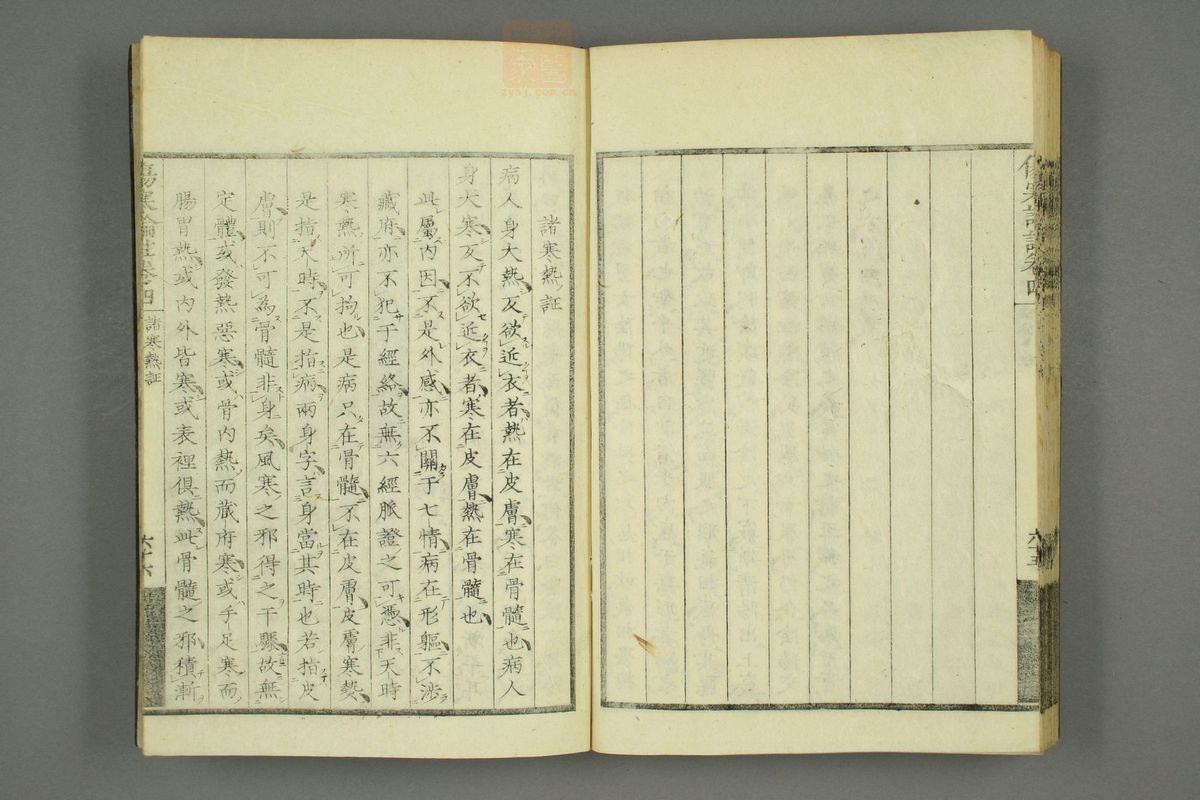 傷寒論註卷四
六十五
諸寒熱証
病人身大熱反欲近衣者熱在皮膚寒在骨髓也病人
身大寒反不欲近衣者寒在皮膚熱在骨髓也
此屬內因不是外感亦不關于七情病在形軀不涉
藏府亦不犯于經絡故無六經脈證之可憑非天時
寒熱所可拘也是病只在骨髓不在皮膚皮膚寒熱
是指天時不是指病兩身字言身當其時也若指皮
膚則不可為骨髓非身矣風寒之邪得之于驟故無
定體或發熱惡寒或骨內熱而藏府寒或手足寒而
腸胃熱或內外皆寒或表裡俱熱此骨髓之邪積漸
傷寒論註卷四
諸寒熱証
六十六
zysj.com.cn